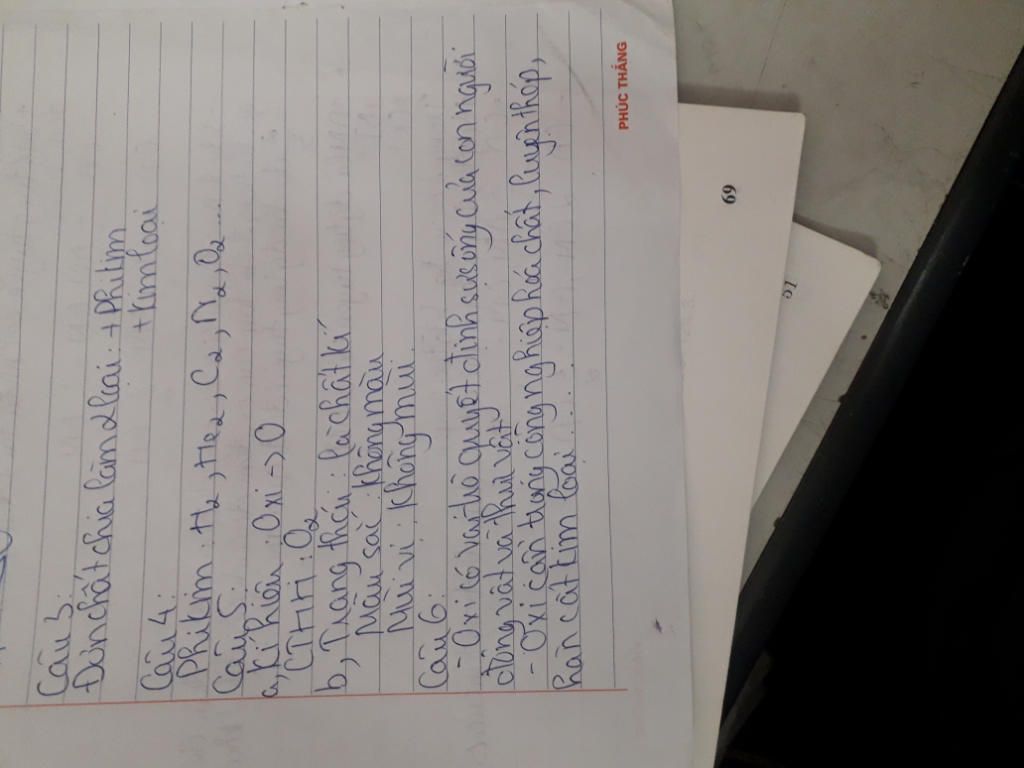 Câu 3:
Đơn chất chia làm 2 loại: + Phi kim
+ Kim loại
Câu 4:
Phi kim: H2, He2, C2, N2, O2....
Câu 5:
a, Kí hiệu: Oxi => O
CTHH: O2
b, Trạng thái: là chất kí
Màu sắc: không màu
Mùi vị: không mùi.
Câu 6:
- Oxi có vai trò quyết định sự sống của con người
động vật và thực vật
- Oxi cần trong công nghiệp hóa chất, luyện thép,
hàn cắt kim loại.......
PHÚC THẮNG
69